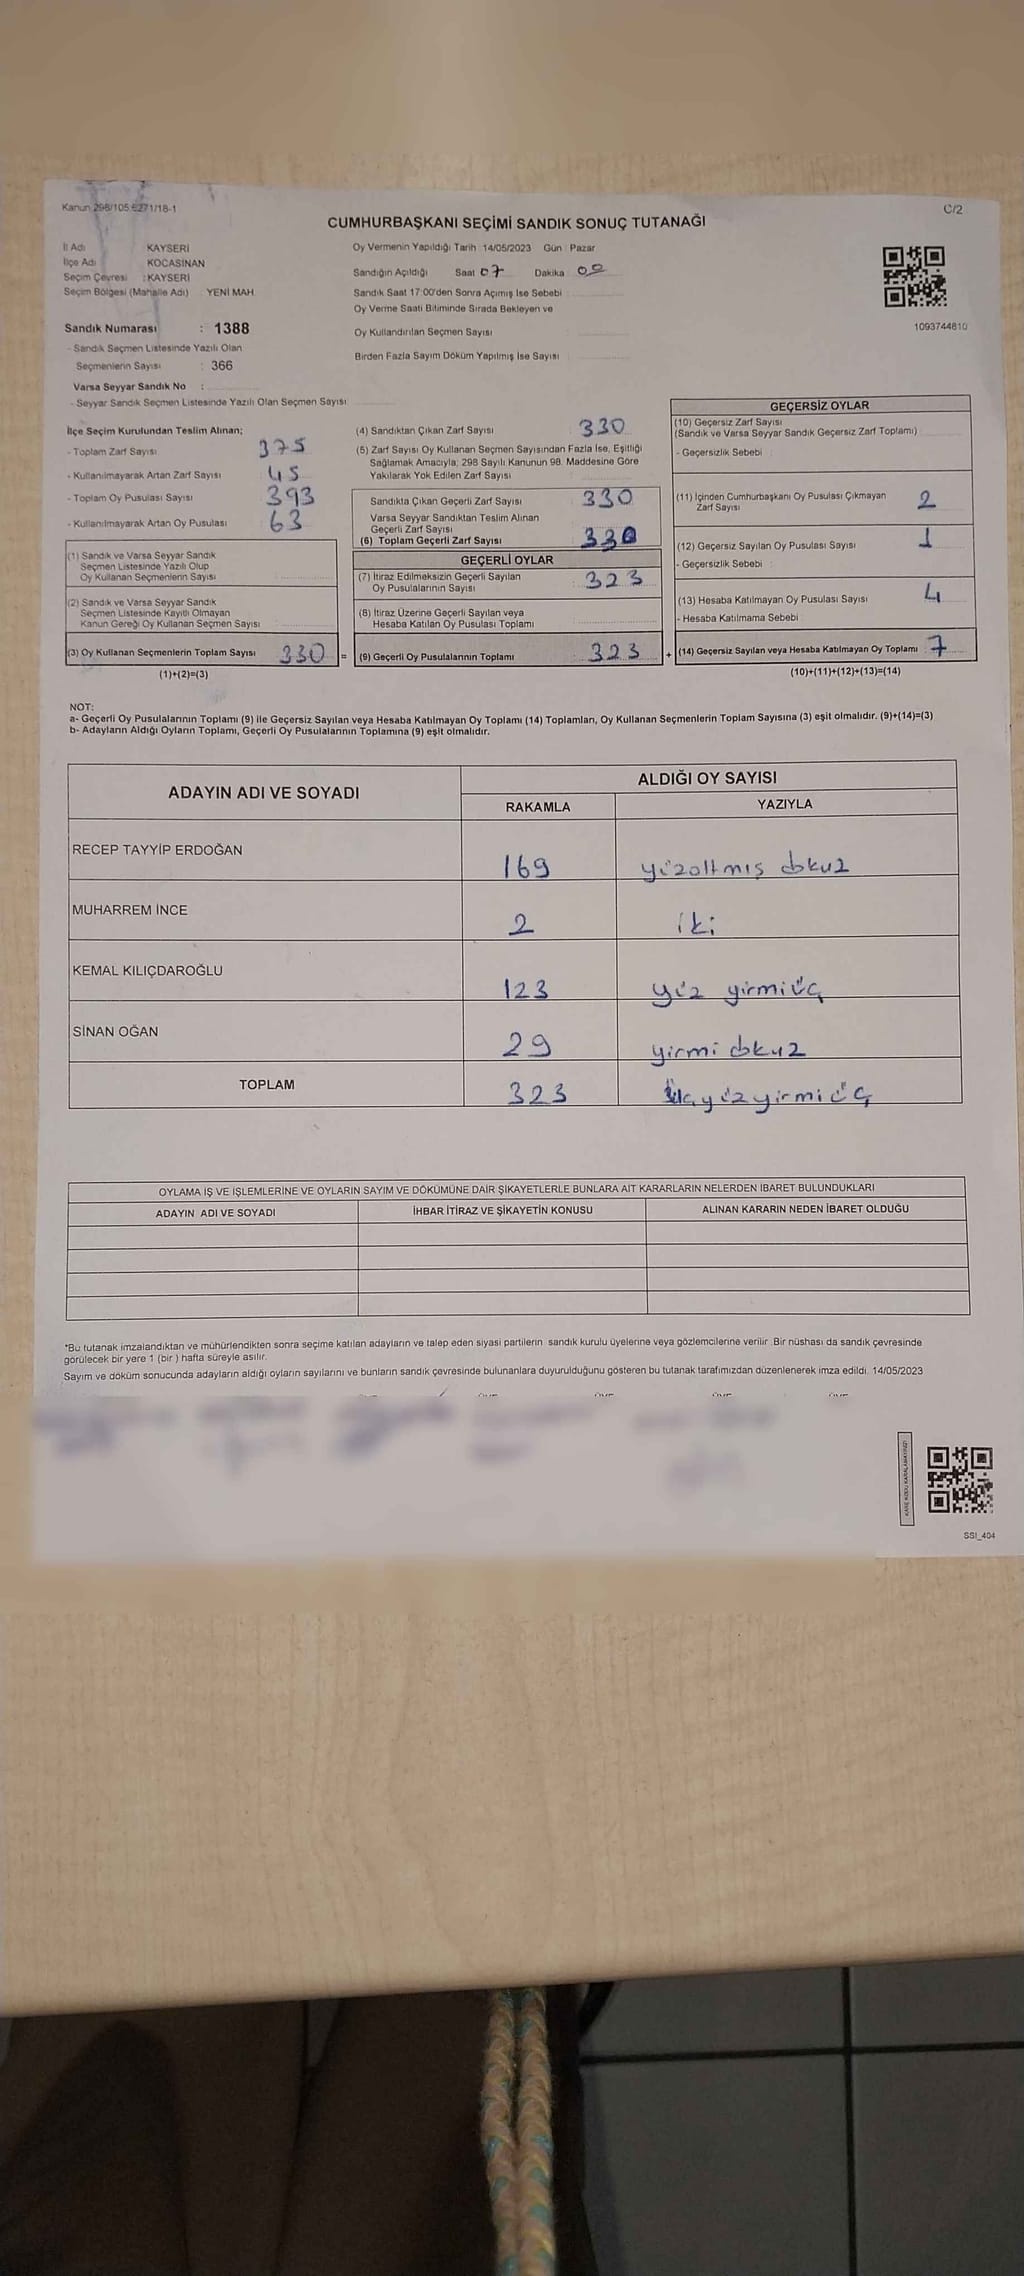 Kanun 298/105 6271/18-1
C/2
CUMHURBAŞKANI SEÇİMİ SANDIK SONUÇ TUTANAĞI
İl Adı KAYSERİ
İlçe Adı KOCASİNAN
Seçim Çevresi : KAYSERİ
Seçim Bölgesi (Mahalle Adı) : YENİ MAH.
Sandık Numarası : 1388
- Sandık Seçmen Listesinde Yazılı Olan
Seçmenlerin Sayısı : 366
Varsa Seyyar Sandık No :
- Seyyar Sandık Seçmen Listesinde Yazılı Olan Seçmen Sayısı
Oy Vermenin Yapıldığı Tarih : 14/05/2023 Gün : Pazar
Sandığın Açıldığı Saat 07 Dakika 00
Sandık Saat 17:00'den Sonra Açımış İse Sebebi :
Oy Verme Saati Bitiminde Sırada Bekleyen ve
Oy Kullandırılan Seçmen Sayısı :
Birden Fazla Sayım Döküm Yapılmış İse Sayısı :
1093744810
İlçe Seçim Kurulundan Teslim Alınan;
- Toplam Zarf Sayısı 375
- Kullanılmayarak Artan Zarf Sayısı 45
- Toplam Oy Pusulası Sayısı 393
- Kullanılmayarak Artan Oy Pusulası 63
(1) Sandık ve Varsa Seyyar Sandık
Seçmen Listesinde Yazılı Olup
Oy Kullanan Seçmenlerin Sayısı :
(2) Sandık ve Varsa Seyyar Sandık
Seçmen Listesinde Kayıtlı Olmayan
Kanun Gereği Oy Kullanan Seçmen Sayısı :
(3) Oy Kullanan Seçmenlerin Toplam Sayısı 330 =
(1)+(2)=(3)
(4) Sandıktan Çıkan Zarf Sayısı : 330
(5) Zarf Sayısı Oy Kullanan Seçmen Sayısından Fazla İse, Eşitliği
Sağlamak Amacıyla; 298 Sayılı Kanunun 98. Maddesine Göre
Yakılarak Yok Edilen Zarf Sayısı :
Sandıkta Çıkan Geçerli Zarf Sayısı : 330
Varsa Seyyar Sandıktan Teslim Alınan
Geçerli Zarf Sayısı
(6) Toplam Geçerli Zarf Sayısı : 330
GEÇERLİ OYLAR
(7) İtiraz Edilmeksizin Geçerli Sayılan
Oy Pusulalarının Sayısı : 323
(8) İtiraz Üzerine Geçerli Sayılan veya
Hesaba Katılan Oy Pusulası Toplamı :
(9) Geçerli Oy Pusulalarının Toplamı : 323 +
GEÇERSİZ OYLAR
(10) Geçersiz Zarf Sayısı
(Sandık ve Varsa Seyyar Sandık Geçersiz Zarf Toplamı)
- Geçersizlik Sebebi :
(11) İçinden Cumhurbaşkanı Oy Pusulası Çıkmayan
Zarf Sayısı 2
(12) Geçersiz Sayılan Oy Pusulası Sayısı 1
- Geçersizlik Sebebi :
(13) Hesaba Katılmayan Oy Pusulası Sayısı 4
- Hesaba Katılmama Sebebi
(14) Geçersiz Sayılan veya Hesaba Katılmayan Oy Toplamı : 7
(10)+(11)+(12)+(13)=(14)
NOT:
a- Geçerli Oy Pusulalarının Toplamı (9) ile Geçersiz Sayılan veya Hesaba Katılmayan Oy Toplamı (14) Toplamları, Oy Kullanan Seçmenlerin Toplam Sayısına (3) eşit olmalıdır. (9)+(14)=(3)
b- Adayların Aldığı Oyların Toplamı, Geçerli Oy Pusulalarının Toplamına (9) eşit olmalıdır.
ADAYIN ADI VE SOYADI
ALDIĞI OY SAYISI
RAKAMLA YAZIYLA
RECEP TAYYİP ERDOĞAN 169 yüzaltmış dokuz
MUHARREM İNCE 2 iki
KEMAL KILIÇDAROĞLU 123 yüz yirmiüç
SİNAN OĞAN 29 yirmi dokuz
TOPLAM 323 üçyüzyirmiüç
OYLAMA İŞ VE İŞLEMLERİNE VE OYLARIN SAYIM VE DÖKÜMÜNE DAİR ŞİKAYETLERLE BUNLARA AİT KARARLARIN NELERDEN İBARET BULUNDUKLARI
ADAYIN ADI VE SOYADI İHBAR İTİRAZ VE ŞİKAYETİN KONUSU ALINAN KARARIN NEDEN İBARET OLDUĞU
*Bu tutanak imzalandıktan ve mühürlendikten sonra seçime katılan adayların ve talep eden siyasi partilerin sandık kurulu üyelerine veya gözlemcilerine verilir. Bir nüshası da sandık çevresinde
görülecek bir yere 1 (bir ) hafta süreyle asılır.
Sayım ve döküm sonucunda adayların aldığı oyların sayılarını ve bunların sandık çevresinde bulunanlara duyurulduğunu gösteren bu tutanak tarafımızdan düzenlenerek imza edildi. 14/05/2023
KARE KODU KARALAMAYINIZ!
SSI_404